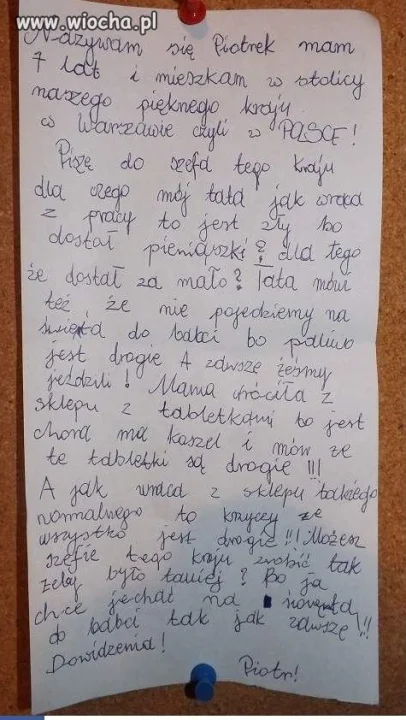 www.wiocha.pl
Nazywam się Piotrek mam
7 lat i mieszkam w stolicy
naszego pięknego kraju
w Warszawie czyli w POLSCE!
Piszę do szefa tego kraju
dla czego mój tata jak wraca
z pracy to jest zły bo
dostał pieniąszki? dla tego
że dostał za mało? Tata mówi
też że nie pojedziemy na
święta do babci bo paliwo
jest drogie A zawsze żeśmy
jeździli! Mama wróciła z
sklepu z tabletkami bo jest
chora ma kaszel i mówi ze
te tabletki są drogie!!!
A jak wraca z sklepu takiego
normalnego to krzyczy ze
wszystko jest drogie!!! Możesz
szefie tego kraju zrobić tak
żeby było taniej? Bo ja
chce jechać na
do babci tak jak zawsze!!!
Dowidzenia!
Piotr!